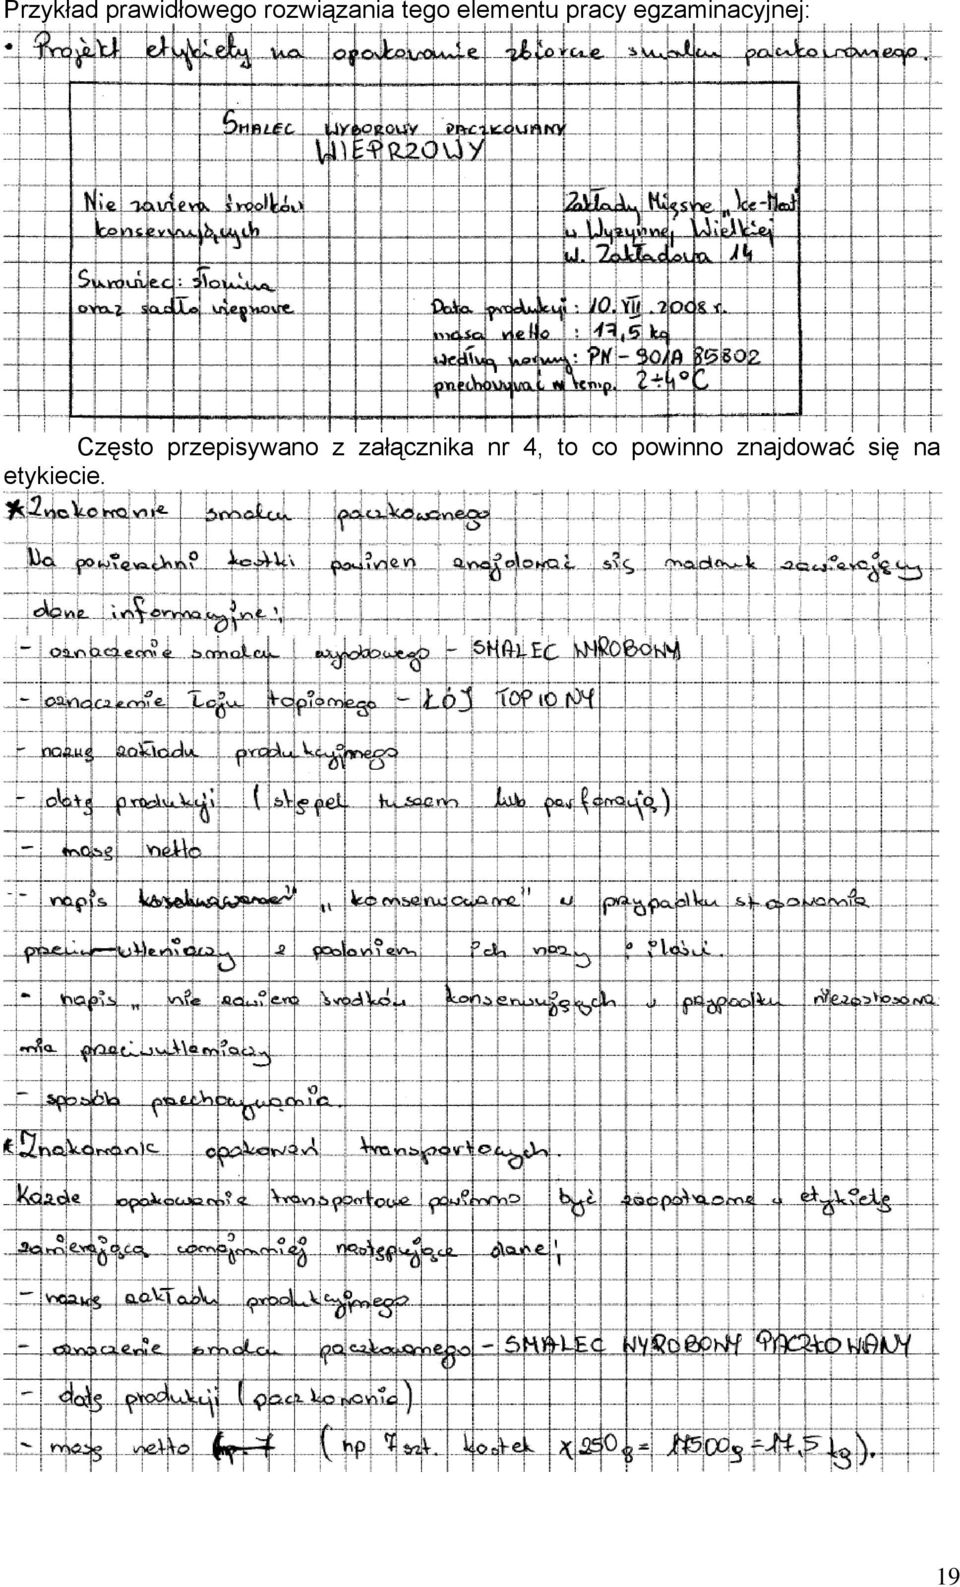 Przykład prawidłowego rozwiązania tego elementu pracy egzaminacyjnej:
• Projekt etykiety na opakowanie zbiorcze smalcu paczkowanego.
SMALEC WYBOROWY PACZKOWANY
WIEPRZOWY
Nie zawiera środków
konserwujących
Surowiec: słonina
oraz sadło wieprzowe
Zakłady Mięsne „Ice-Meat"
w Wyżynnej Wielkiej
ul. Zakładowa 14
Data produkcji: 10.VII.2008 r.
masa netto : 17,5 kg
według normy: PN-90/A 85802
przechowywać w temp. 2÷4°C
Często przepisywano z załącznika nr 4, to co powinno znajdować się na
etykiecie.
* Znakowanie smalcu paczkowanego
Na powierzchni kostki powinien znajdować się nadruk zawierający
dane informacyjne:
- oznaczenie smalcu wyrobowego - SMALEC WYROBOWY
- oznaczenie łoju topionego - ŁÓJ TOPIONY
- nazwę zakładu produkcyjnego
- datę produkcji (stępel tuszem lub perforacją)
- masę netto
- napis „konserwowane" w przypadku stosowania
przeciw-utleniaczy z podaniem ich nazy i ilości.
- napis „nie zawiera środków konserwujących w przypadku niezastosowa
nia przeciwutleniaczy
- sposób przechowywania.
* Znakowanie opakowań transportowych.
Każde opakowanie transportowe powinno być zaopatrzone w etykietę
zawierającą conajmniej następujące dane:
- nazwę zakładu produkcyjnego
- oznaczenie smalcu paczkowanego - SMALEC WYROBOWY PACZKOWANY
- datę produkcji (paczkowania)
- masę netto (np 7 szt. kostek x 250g = 17500g = 17,5 kg).
19